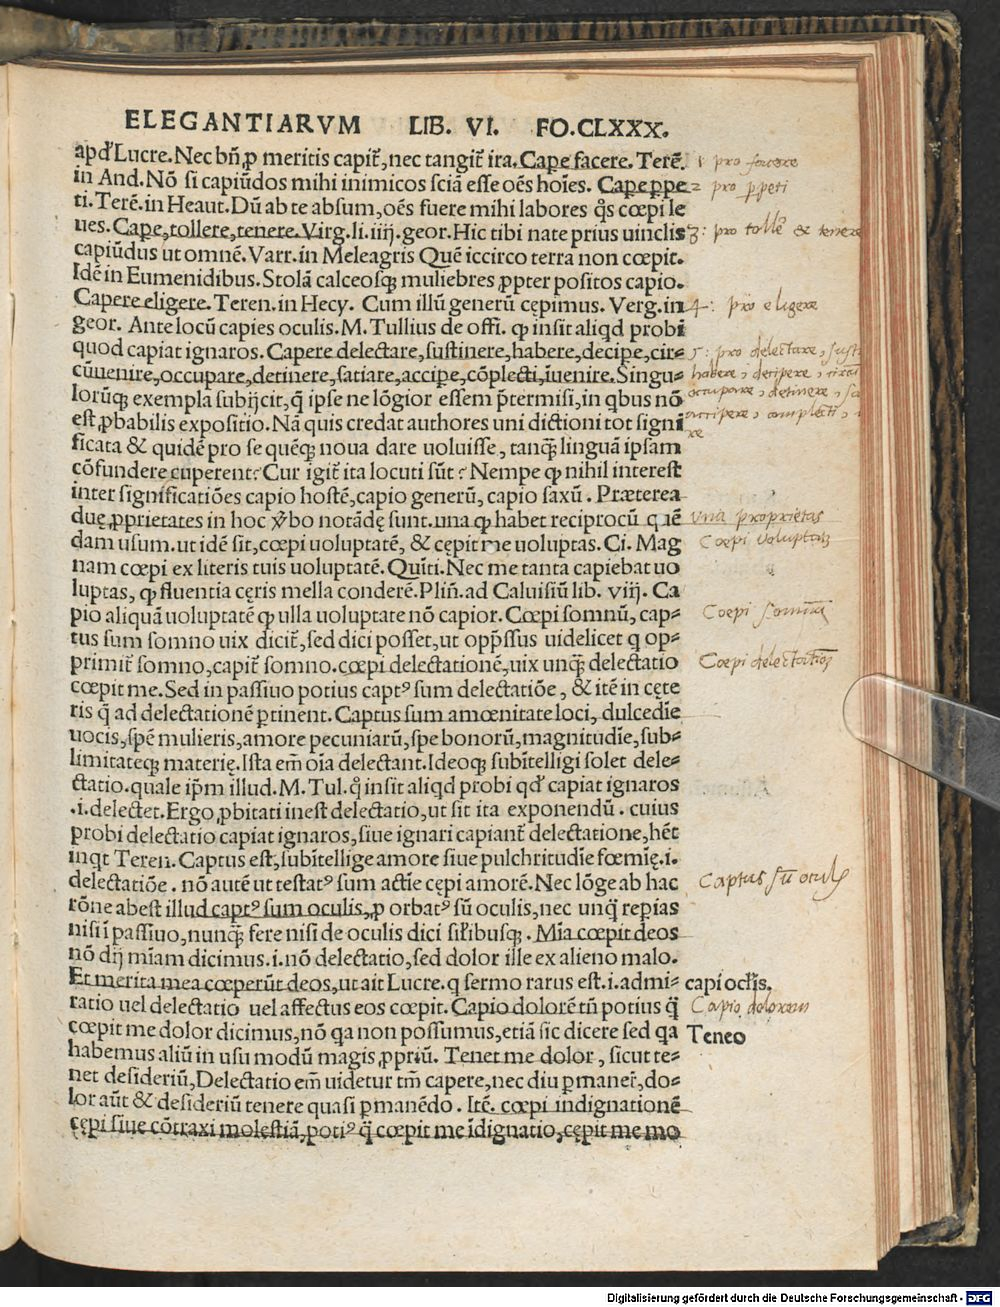 ELEGANTIARVM LIB. VI. FO.CLXXX.
apd' Lucre. Nec bñ ꝓ meritis capit̃, nec tangit̃ ira. Cape facere. Terẽ. 1 pro facere
in And. Nõ si capiũdos mihi inimicos sciã esse oẽs hoĩes. Cape ꝑpe 2 pro ꝑpeti
ti. Terẽ. in Heaut. Dũ ab te absum, oẽs fuere mihi labores q̊s cœpi le
ues. Cape, tollere, tenere. Virg. li. iiij. geor. Hic tibi nate prius uinclis 3: pro tollẽ & tenere
capiũdus ut omnẽ. Varr. in Meleagris Quẽ iccirco terra non cœpit.
Idẽ in Eumenidibus. Stolã calceosq; muliebres ꝓpter positos capio.
Capere eligere. Teren. in Hecy. Cum illũ generũ cępimus. Verg. in 4: pro eligere
geor. Ante locũ capies oculis. M. Tullius de offi. ꝙ insit aliqd probi
quod capiat ignaros. Capere delectare, sustinere, habere, decipe, cir= 5: pro delectare, sust
cũuenire, occupare, detinere, satiare, accipe, cõplecti, ĩuenire. Singu= habere, decipere,
lorũq; exempla subijcit, q̃ ipse ne lõgior essem p̃termisi, in qbus nõ occupare, detinere,
est ꝓbabilis expositio. Nã quis credat authores uni dictioni tot signi accipere, complecti,
ficata & quidẽ pro se quẽq; noua dare uoluisse, tanq̃ linguã ipsam re
cõfundere cuperent? Cur igit̃ ita locuti sũt? Nempe ꝙ nihil interest
inter significatiões capio hostẽ, capio generũ, capio saxũ. Præterea
duę ꝓprietates in hoc ỹbo notãdę sunt. una ꝙ habet reciprocũ q iẽ una proprietas
dam usum. ut idẽ sit, cœpi uoluptatẽ, & cępit me uoluptas. Ci. Mag Coepi voluptatẽ
nam cœpi ex literis tuis uoluptatẽ. Quĩti. Nec me tanta capiebat uo
luptas, ꝙ fluentia cęris mella conderẽ. Pliñ. ad Caluisiũ lib. viij. Ca
pio aliquã uoluptatẽ ꝙ ulla uoluptate nõ capior. Cœpi somnũ, cap= Coepi somnũ
tus sum somno uix dicit̃, sed dici posset, ut opp̃ssus uidelicet q op=
primit̃ somno, capit̃ somno. cœpi delectationẽ, uix unq̃ delectatio Coepi delectationẽ
cœpit me. Sed in passiuo potius captꝰ sum delectatiõe, & itẽ in cęte
ris q̃ ad delectationẽ ꝑtinent. Captus sum amœnitate loci, dulcedĩe
uocis, spẽ mulieris, amore pecuniarũ, spe bonorũ, magnitudĩe, sub=
limitateq; materię. Ista em̃ oĩa delectant. Ideoq; subĩtelligi solet dele=
ctatio. quale ip̃m illud. M. Tul. q̊ insit aliqd probi qd' capiat ignaros
.i. delectet. Ergo ꝓbitati inest delectatio, ut sit ita exponendũ. cuius
probi delectatio capiat ignaros, siue ignari capiant̃ delectatione, hẽt
inqt Teren. Captus est, subĩtellige amore siue pulchritudĩe fœmię .i.
delectatiõe. nõ autẽ ut testatꝰ sum actĩe cępi amorẽ. Nec lõge ab hac Captus sũ oculis
rõne abest illud captꝰ sum oculis, ꝓ orbatꝰ sũ oculis, nec unq̃ reꝑias
nisi ĩ passiuo, nunq̃ fere nisi de oculis dici sil̃ibusq;. Mĩa cœpit deos
nõ dĩj mĩam dicimus .i. nõ delectatio, sed dolor ille ex alieno malo.
Et merita mea cœperũt deos, ut ait Lucre. q sermo rarus est .i. admi= capi ocl̃is.
ratio uel delectatio uel affectus eos cœpit. Capio dolorẽ tñ potius q̃ Capio dolorem
cœpit me dolor dicimus, nõ qa non possumus, etiã sic dicere sed qa Teneo
habemus aliũ in usu modũ magis ꝓpriũ. Tenet me dolor, sicut te=
net desideriũ, Delectatio em̃ uidetur tm̃ capere, nec diu ꝑmanet, do=
lor aũt & desideriũ tenere quasi ꝑmanẽdo. Itẽ. cœpi indignationẽ
cępi siue cõtraxi molestiã, potiꝰ q̃ cœpit me ĩdignatio, cępit me mo
Digitalisierung gefördert durch die Deutsche Forschungsgemeinschaft - DFG